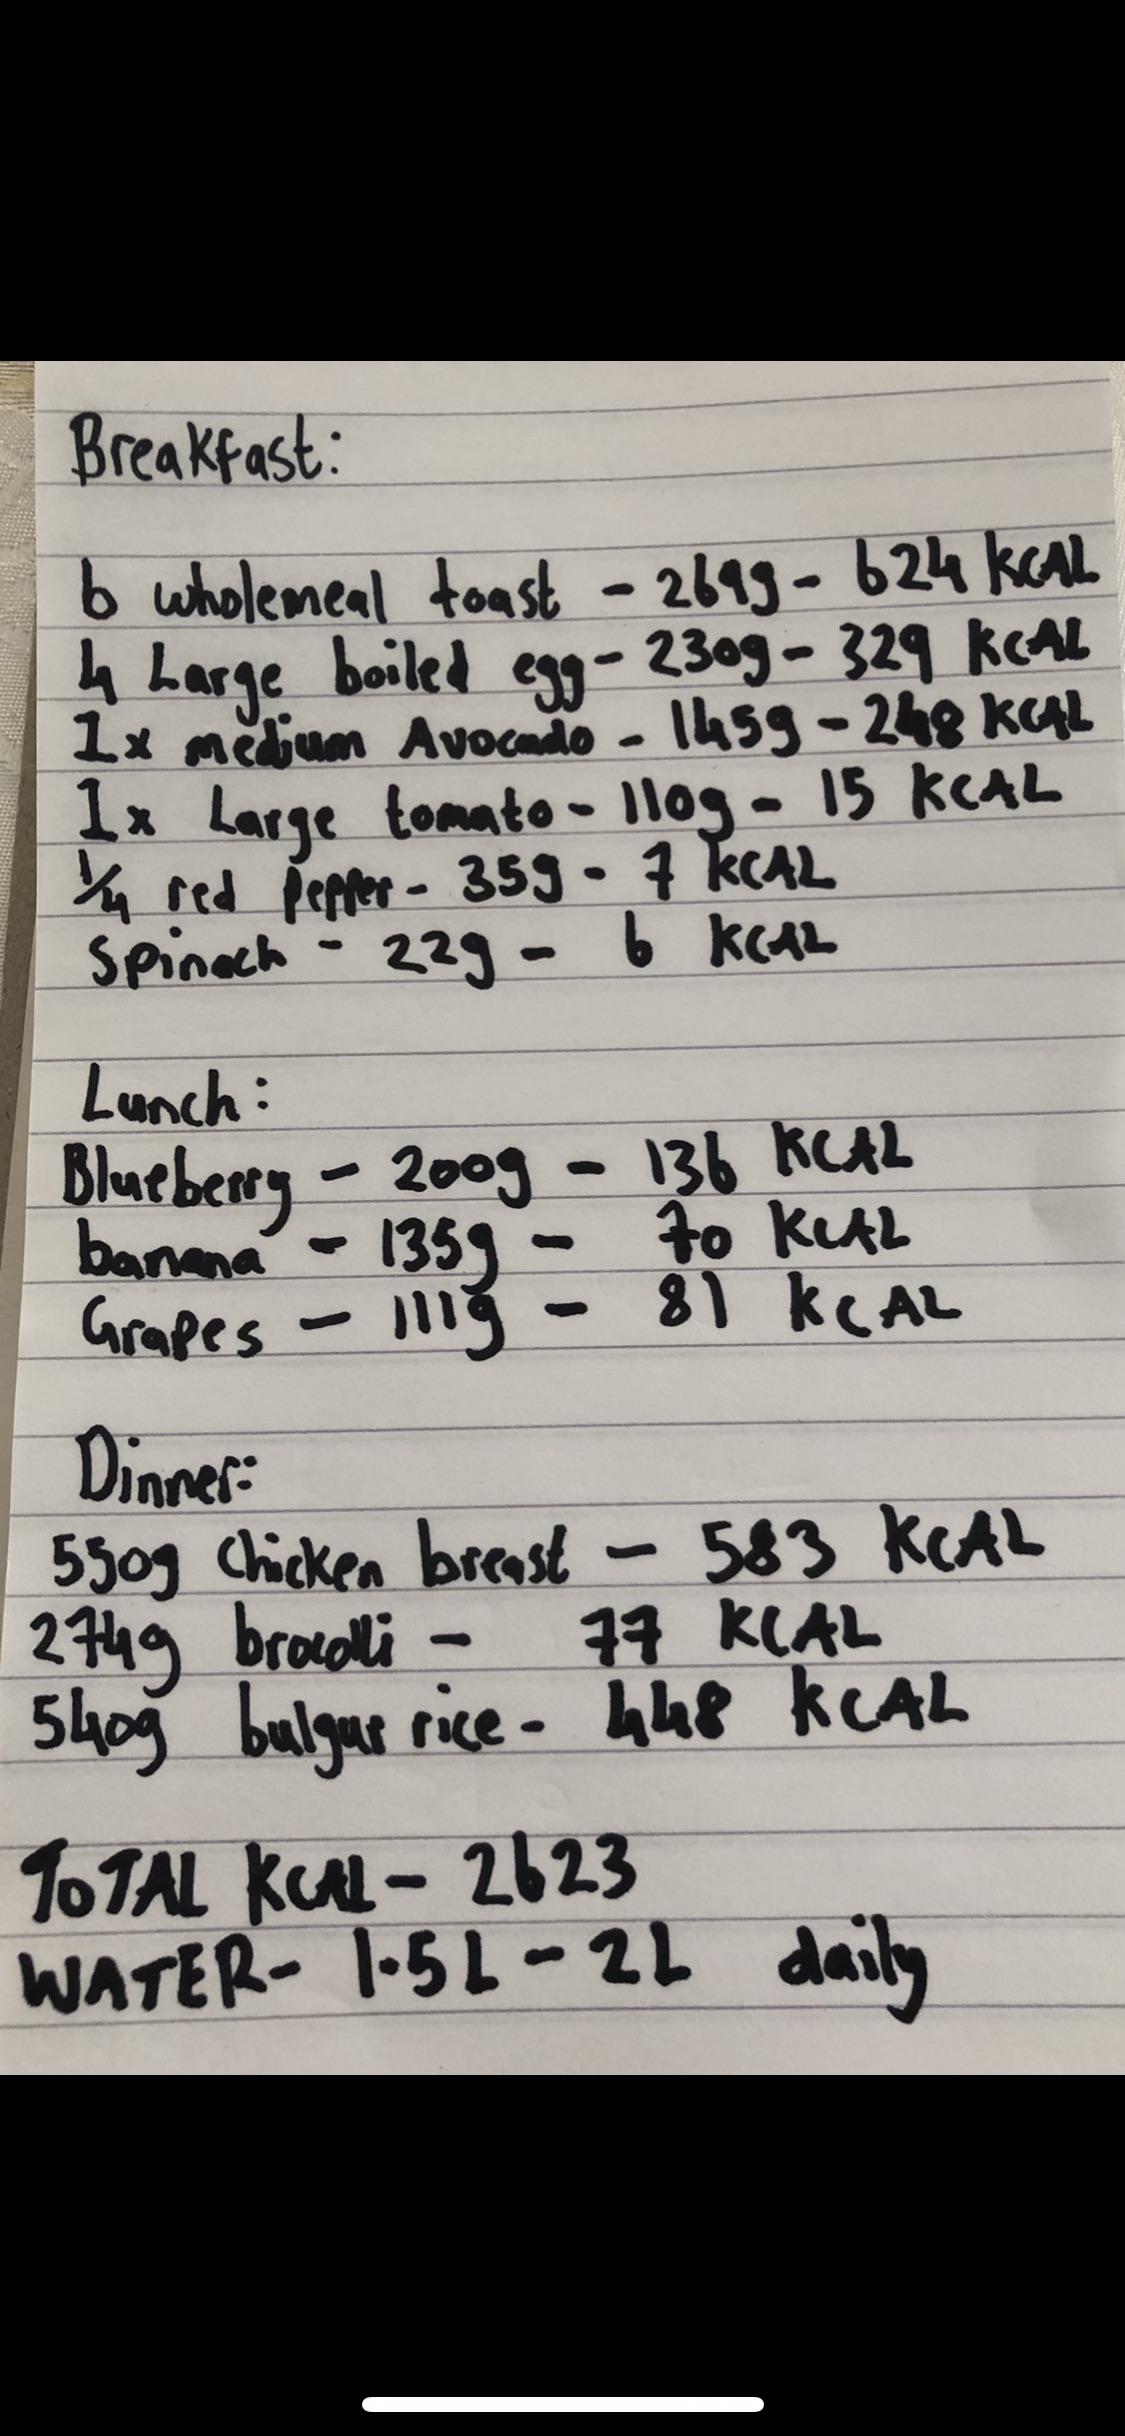 Breakfast:
6 wholemeal toast - 269g - 624 KCAL
4 Large boiled egg - 230g - 329 KCAL
1x medium Avocado - 145g - 248 KCAL
1x Large tomato - 110g - 15 KCAL
1/4 red pepper - 35g - 7 KCAL
Spinach - 22g - 6 KCAL
Lunch:
Blueberry - 200g - 136 KCAL
banana - 135g - 70 KCAL
Grapes - 111g - 81 KCAL
Dinner:
550g Chicken breast - 583 KCAL
274g brocolli - 77 KCAL
540g bulgur rice - 448 KCAL
TOTAL KCAL - 2623
WATER - 1.5L - 2L daily